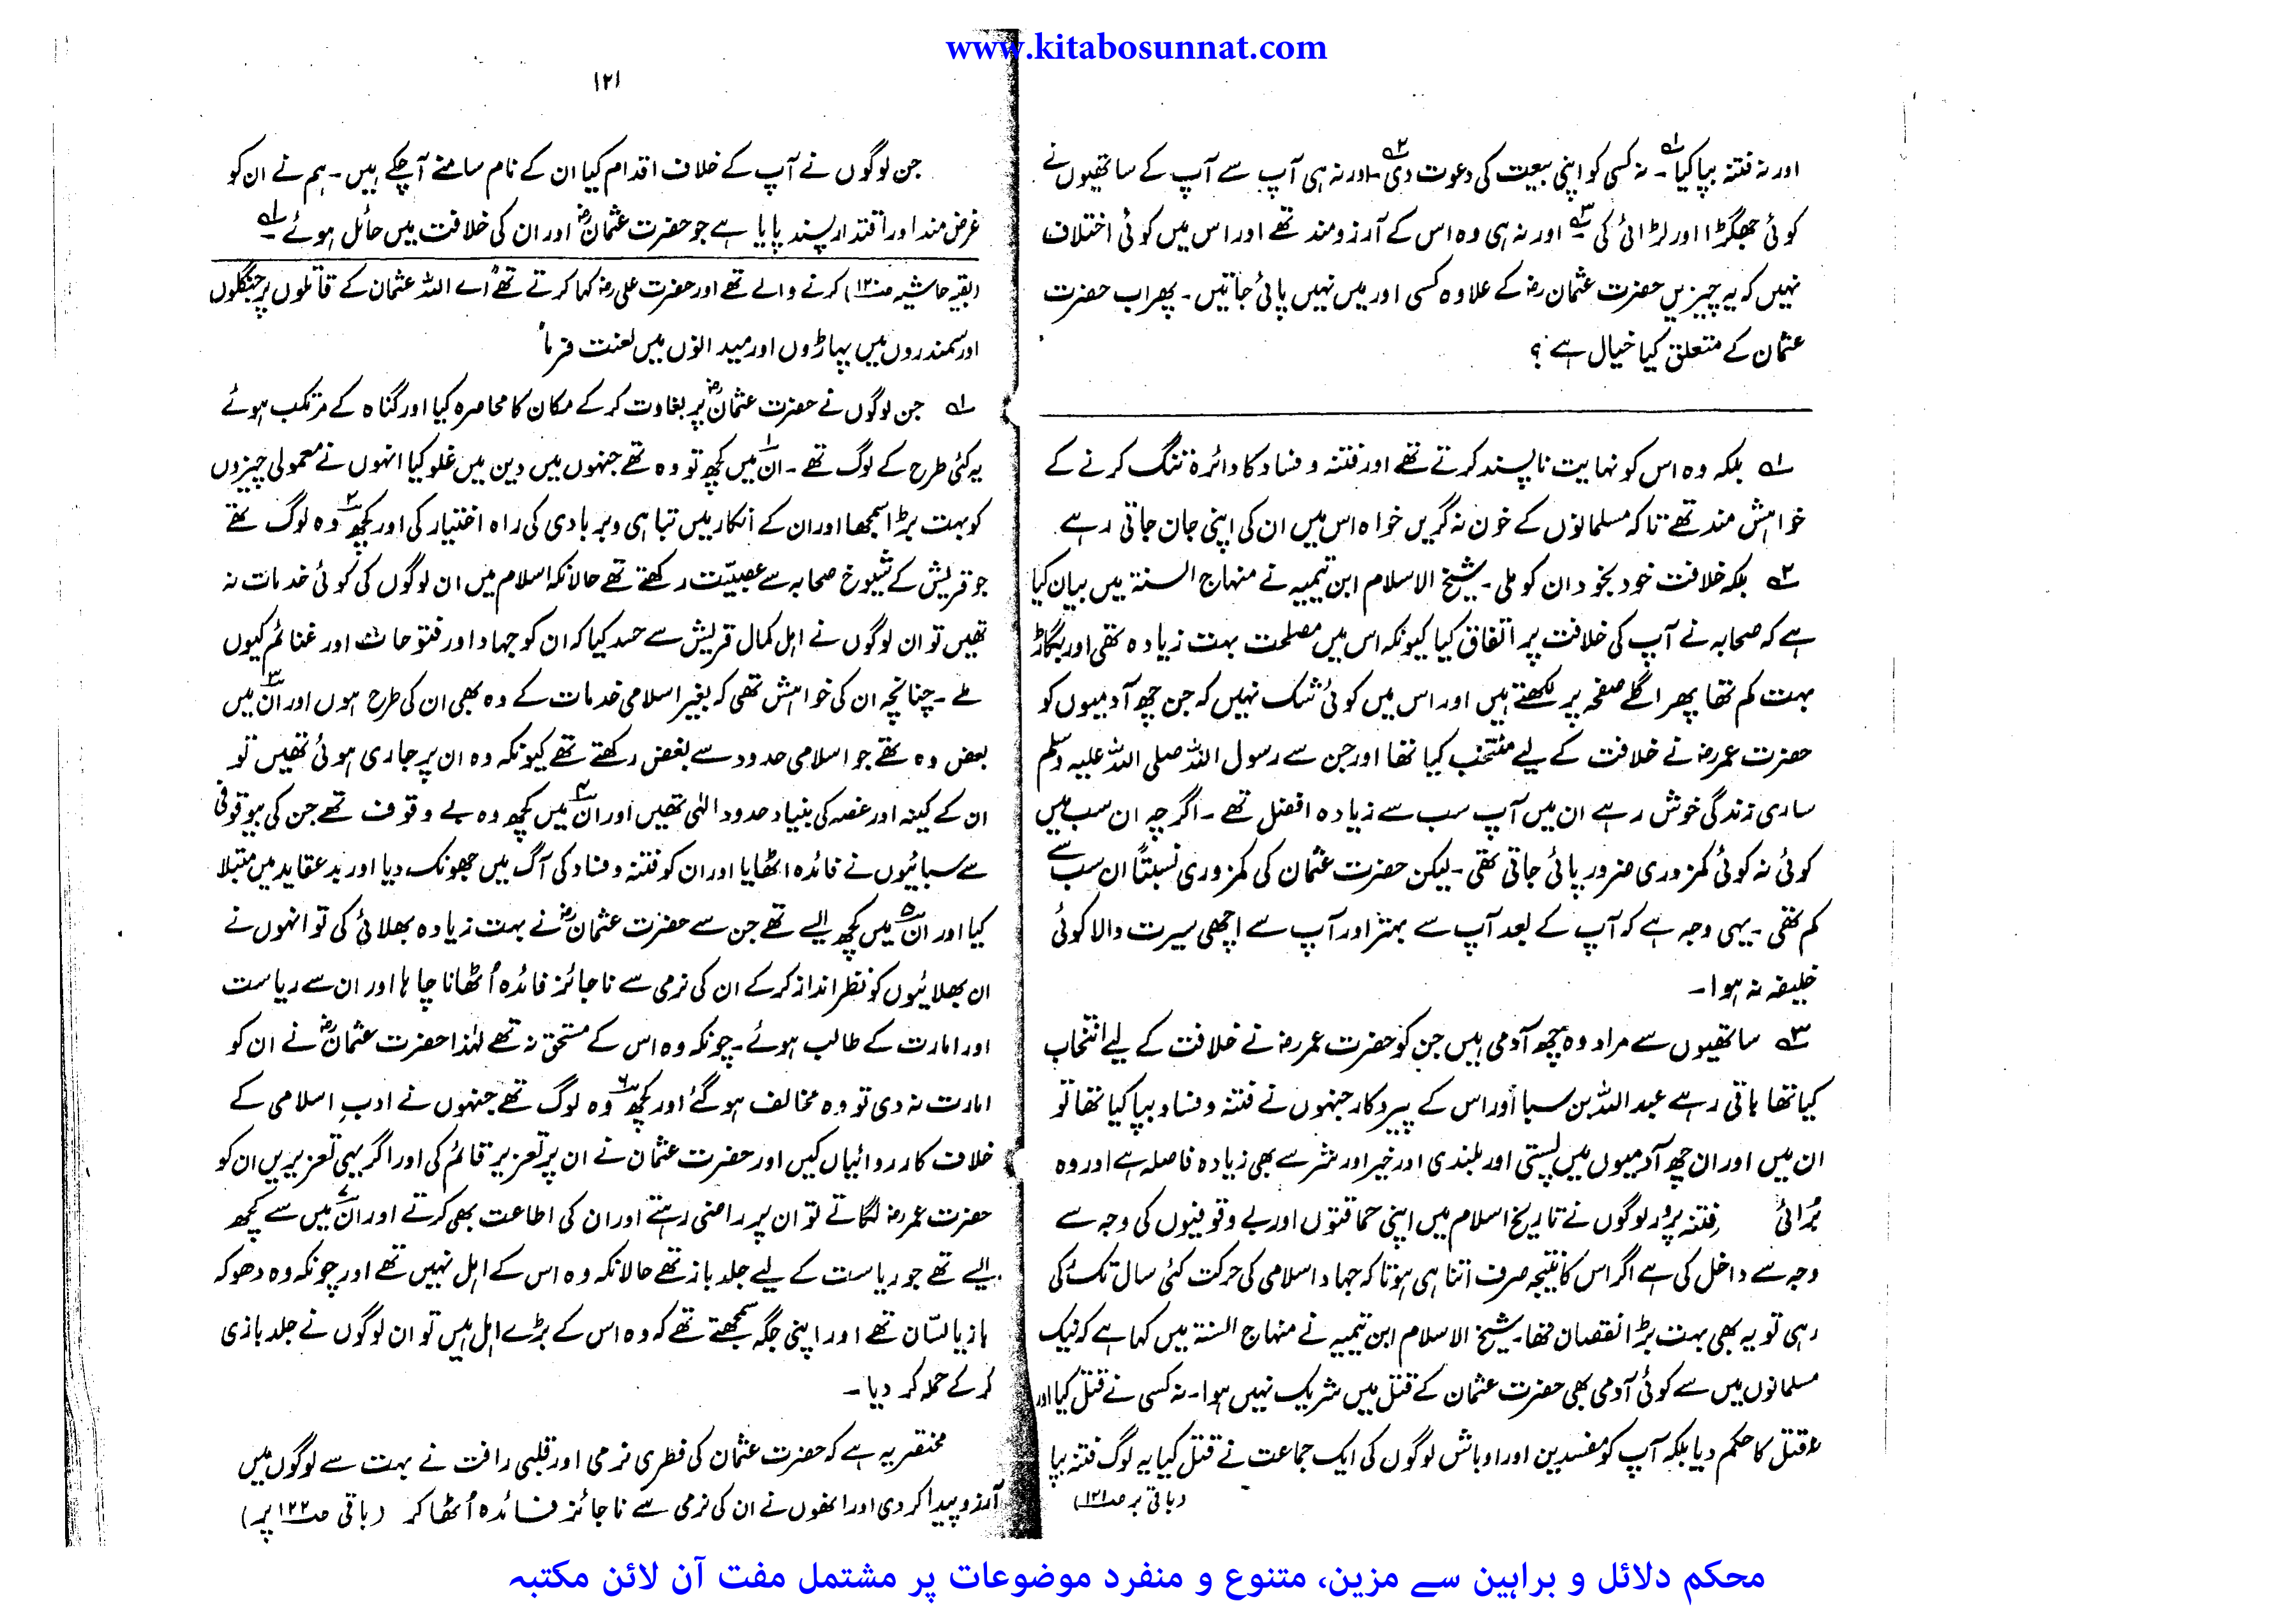 www.kitabosunnat.com
اور نہ فتنہ بپا کیا۱؎۔ نہ کسی کو اپنی بیعت کی دعوت دی۲؎۔ اور نہ ہی آپ سے آپ کے ساتھیوں نے
کوئی جھگڑا اور لڑائی کی۳؎ اور نہ ہی وہ اس کے آرزومند تھے اور اس میں کوئی اختلاف
نہیں کہ یہ چیزیں حضرت عثمان رضؓ کے علاوہ کسی اور میں نہیں پائی جاتیں۔ پھر اب حضرت
عثمان کے متعلق کیا خیال ہے؟
۱؎ بلکہ وہ اس کو نہایت ناپسند کرتے تھے اور فتنہ و فساد کا دائرہ تنگ کرنے کے
خواہش مند تھے تاکہ مسلمانوں کے خون نہ گریں خواہ اس میں ان کی اپنی جان جاتی رہے
۲؎ بلکہ خلافت خود بخود ان کو ملی۔ شیخ الاسلام ابن تیمیہ نے منہاج السنۃ میں بیان کیا
ہے کہ صحابہ نے آپ کی خلافت پر اتفاق کیا کیونکہ اس میں مصلحت بہت زیادہ تھی اور بگاڑ
بہت کم تھا پھر اگلے صفحہ پر لکھتے ہیں اور اس میں کوئی شک نہیں کہ جن چھ آدمیوں کو
حضرت عمر رضؓ نے خلافت کے لیے منتخب کیا تھا اور جن سے رسول اللہ صلی اللہ علیہ وسلم
ساری زندگی خوش رہے ان میں آپ سب سے زیادہ افضل تھے۔ اگرچہ ان سب میں
کوئی نہ کوئی کمزوری ضرور پائی جاتی تھی۔ لیکن حضرت عثمان کی کمزوری نسبتاً ان سب سے
کم تھی۔ یہی وجہ ہے کہ آپ کے بعد آپ سے بہتر اور آپ سے اچھی سیرت والا کوئی
خلیفہ نہ ہوا۔
۳؎ ساتھیوں سے مراد وہ چھ آدمی ہیں جن کو حضرت عمر رضؓ نے خلافت کے لیے انتخاب
کیا تھا باقی رہے عبد اللہ بن سبا اور اس کے پیروکار جنہوں نے فتنہ و فساد بپا کیا تھا تو
ان میں اور ان چھ آدمیوں میں پستی اور بلندی اور خیر اور شر سے بھی زیادہ فاصلہ ہے اور وہ
برائی فتنہ پرور لوگوں نے تاریخ اسلام میں اپنی حماقتوں اور بے وقوفیوں کی وجہ سے
وجہ سے داخل کی ہے اگر اس کا نتیجہ صرف اتنا ہی ہوتا کہ جہاد اسلامی کی حرکت کئی سال تک رکی
رہی تو یہ بھی بہت بڑا نقصان تھا۔ شیخ الاسلام ابن تیمیہ نے منہاج السنۃ میں کہا ہے کہ نیک
مسلمانوں میں سے کوئی آدمی بھی حضرت عثمان کے قتل میں شریک نہیں ہوا۔ نہ کسی نے قتل کیا اور
قتل کا حکم دیا بلکہ آپ کو مفسدین اور اوباش لوگوں کی ایک جماعت نے قتل کیا یہ لوگ فتنہ بپا
(باقی بر صـ۱۲۱)
۱۲۱
جن لوگوں نے آپ کے خلاف اقدام کیا ان کے نام سامنے آ چکے ہیں۔ ہم نے ان کو
غرض مند اور اقتدار پسند پایا ہے جو حضرت عثمانؓ اور ان کی خلافت میں حائل ہوئے۱؎۔
(بقیہ حاشیہ صـ۱۲۰) کرنے والے تھے اور حضرت علی رضؓ کہا کرتے تھے "اے اللہ عثمان کے قاتلوں پر جنگلوں
اور سمندروں میں پہاڑوں اور میدانوں میں لعنت فرما"
۱؎ جن لوگوں نے حضرت عثمانؓ پر بغاوت کر کے مکان کا محاصرہ کیا اور گناہ کے مرتکب ہوئے
یہ کئی طرح کے لوگ تھے۔ ان۱ میں کچھ تو وہ تھے جنہوں میں دین میں غلو کیا انہوں نے معمولی چیزوں
کو بہت بڑا سمجھا اور ان کے انکار میں تباہی و بربادی کی راہ اختیار کی اور کچھ۲ وہ لوگ تھے
جو قریش کے شیوخ صحابہ سے عصبیّت رکھتے تھے حالانکہ اسلام میں ان لوگوں کی کوئی خدمات نہ
تھیں تو ان لوگوں نے اہل کمال قریش سے حسد کیا کہ ان کو جہاد اور فتوحات اور غنائم کیوں
ملے۔ چنانچہ ان کی خواہش تھی کہ بغیر اسلامی خدمات کے وہ بھی ان کی طرح ہوں اور ان۳ میں
بعض وہ تھے جو اسلامی حدود سے بغض رکھتے تھے کیونکہ وہ ان پر جاری ہوئی تھیں تو
ان کے کینہ اور غصہ کی بنیاد حدود الٰہی تھیں اور ان۴ میں کچھ وہ بے وقوف تھے جن کی بیوقوفی
سے سبائیوں نے فائدہ اٹھایا اور ان کو فتنہ و فساد کی آگ میں جھونک دیا اور بدعقاید میں مبتلا
کیا اور ان۵ میں کچھ ایسے تھے جن سے حضرت عثمانؓ نے بہت زیادہ بھلائی کی تو انہوں نے
ان بھلائیوں کو نظر انداز کر کے ان کی نرمی سے ناجائز فائدہ اُٹھانا چاہا اور ان سے ریاست
اور امارت کے طالب ہوئے۔ چونکہ وہ اس کے مستحق نہ تھے لہٰذا حضرت عثمانؓ نے ان کو
امارت نہ دی تو وہ مخالف ہو گئے اور کچھ۶ وہ لوگ تھے جنہوں نے ادبِ اسلامی کے
خلاف کارروائیاں کیں اور حضرت عثمان نے ان پر تعزیر قائم کی اور اگر یہی تعزیریں ان کو
حضرت عمر رضؓ لگاتے تو ان پر راضی رہتے اور ان کی اطاعت بھی کرتے اور ان۷ میں سے کچھ
ایسے تھے جو ریاست کے لیے جلد باز تھے حالانکہ وہ اس کے اہل نہیں تھے اور چونکہ وہ دھوکہ
باز یا لسّان تھے اور اپنی جگہ سمجھتے تھے کہ وہ اس کے بڑے اہل ہیں تو ان لوگوں نے جلد بازی
کر کے حملہ کر دیا۔
مختصر یہ ہے کہ حضرت عثمان کی فطری نرمی اور قلبی رافت نے بہت سے لوگوں میں
آرزو پیدا کر دی اور انھوں نے ان کی نرمی سے ناجائز فائدہ اُٹھا کر (باقی صـ۱۲۲ پر)
محکم دلائل و براہین سے مزین، متنوع و منفرد موضوعات پر مشتمل مفت آن لائن مکتبہ